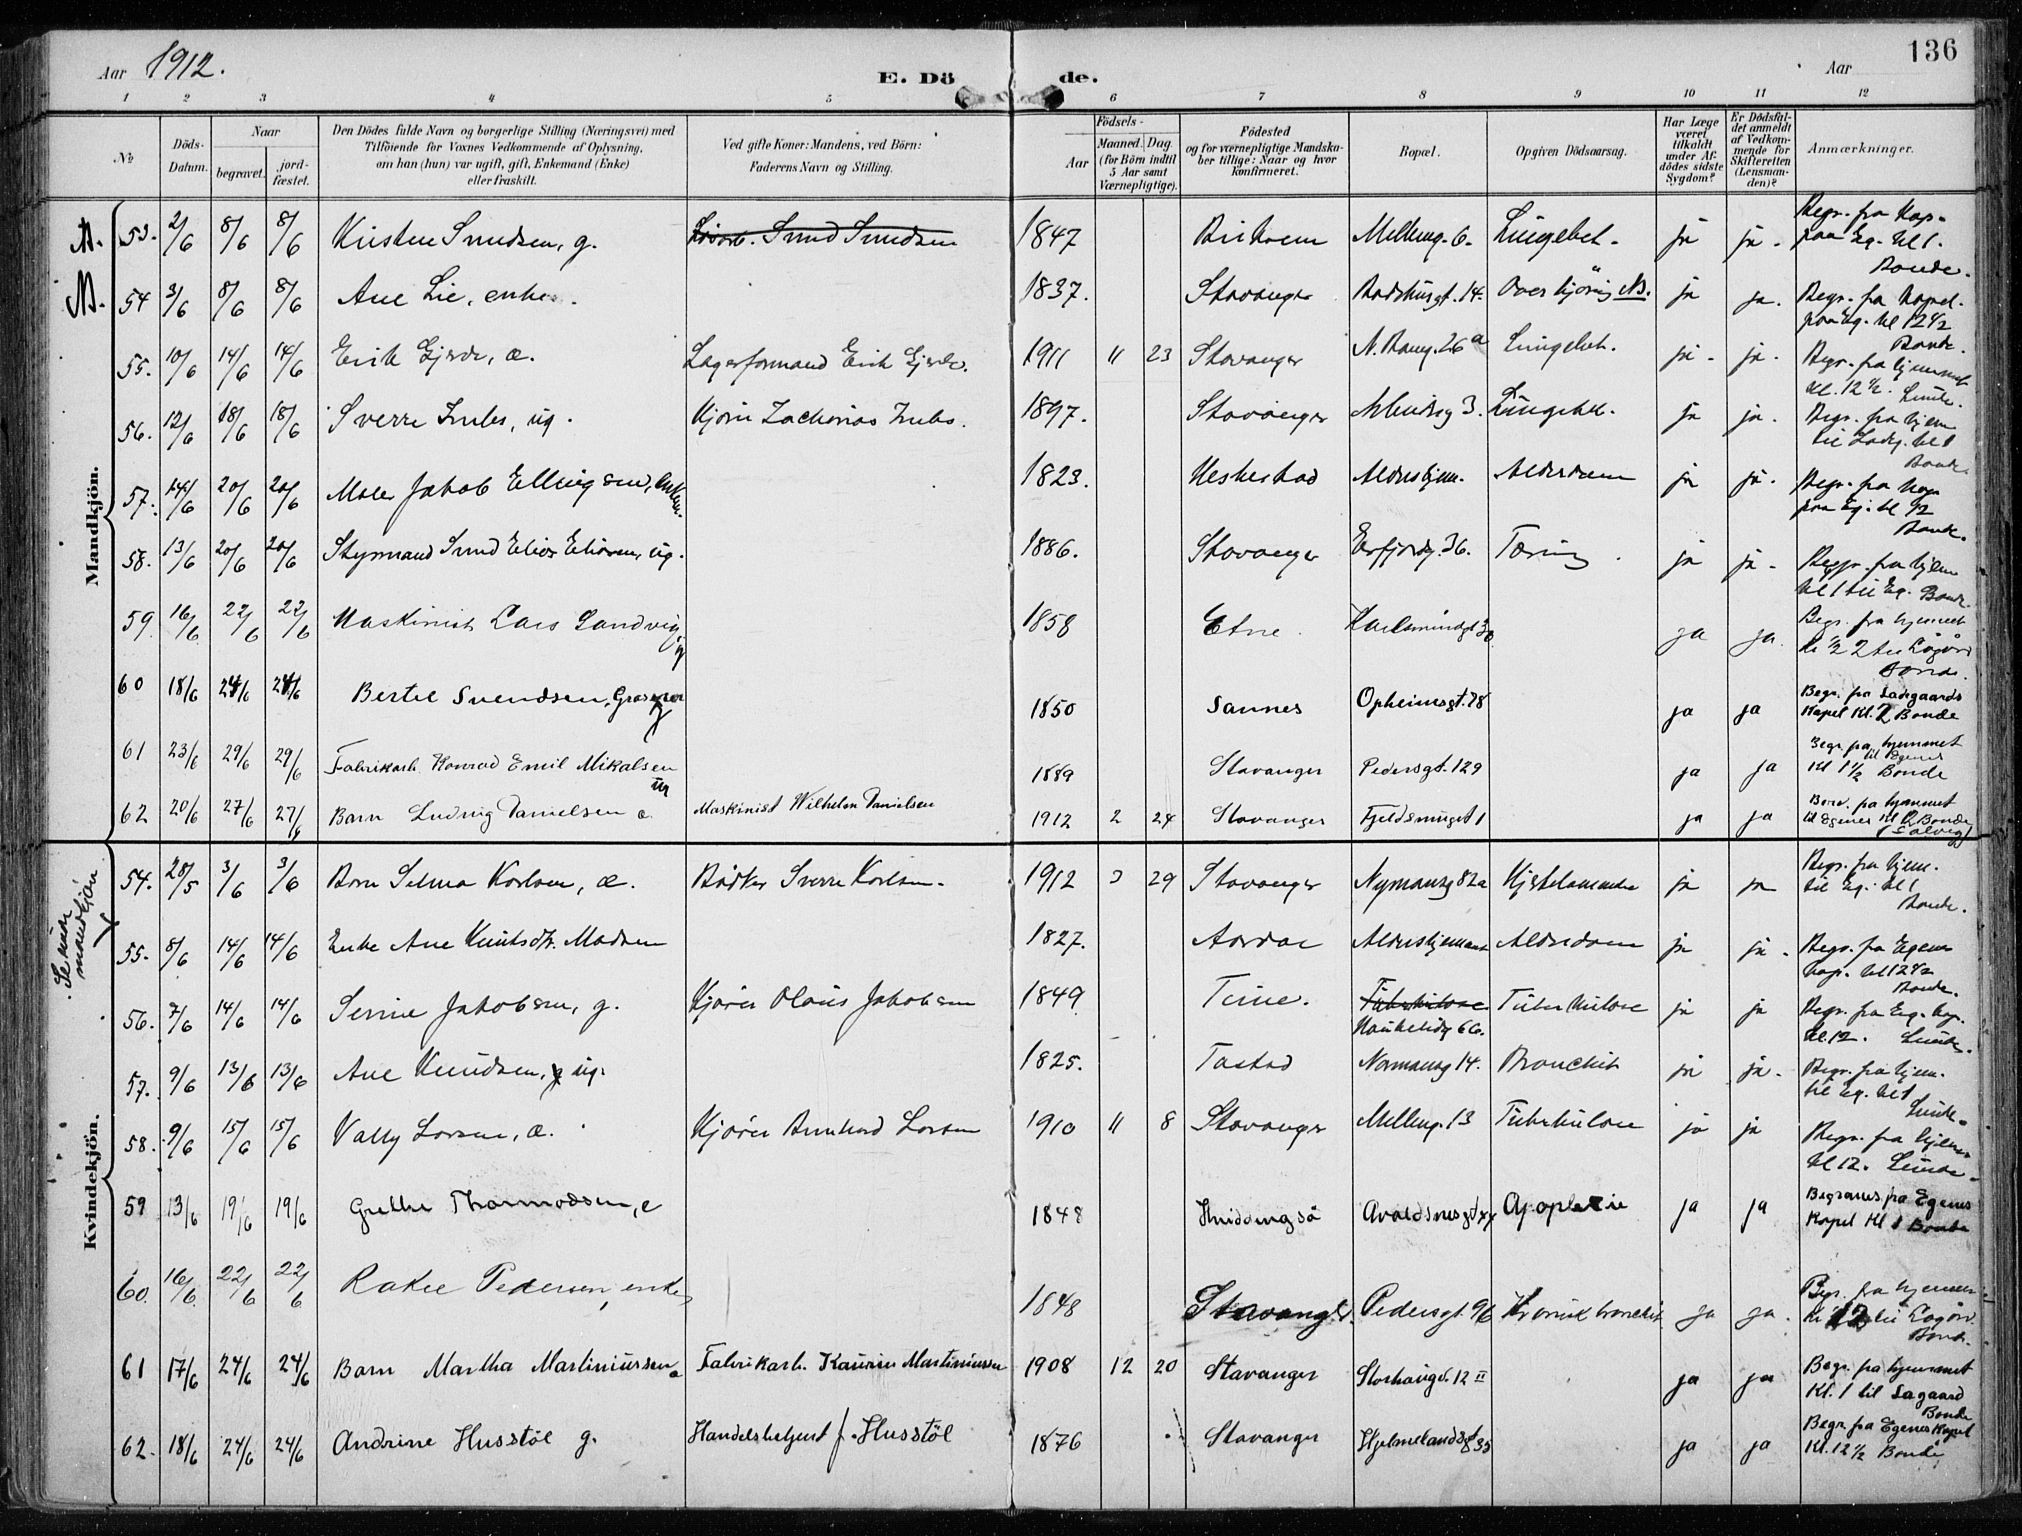 Aar 1912.
E. Döde.
Aar
136
1 2 3 4 5 6 7 8 9 10 11 12
№
Döds-Datum.
Naar
begravet.
jord-fæstet.
Den Dödes fulde Navn og borgerlige Stilling (Næringsvei) med
Tilföiende for Voxnes Vedkommende af Oplysning,
om han (hun) var ugift, gift, Enkemand (Enke)
eller fraskilt.
Ved gifte Koner: Mandens, ved Börn:
Faderens Navn og Stilling.
Födsels-
Aar
Maaned. Dag.
(for Börn indtil
5 Aar samt
Værnepligtige).
Födested
og for værnepligtige Mandska-
ber tillige: Naar og hvor
konfirmeret.
Bopæl.
Opgiven Dödsaarsag.
Har Læge
været
tilkaldt
under Af-
dödes sidste
Sygdom?
Er Dödsfal-
det anmeldt
af Vedkom-
mende for
Skifteretten
(Lensman-
den)?
Anmærkninger.
Mandkjön.
53. 2/6 8/6 8/6 Kristen Snudsen, g. 1847 Mellemg. 6. Lungebet. ja ja. Begr. fra Kap.
paa Eg. kl 1.
Bonde.
54 3/6 8/6 8/6 Ane Lie, enke. 1837. Stavanger Raadhusgt. 14. ja ja. Begr. fra Kapel.
paa Eg. kl 12 1/2
Bonde.
55. 10/6 14/6 14/6 Erik Gjerde, æ. Lagerformand Erik Gjerde. 1911 11 23 Stavanger N. Bang. 26a Lungebet. ja. ja. Begr. fra hjemmet
kl. 12 1/2. Lunde.
56. 12/6 18/6 18/6 Sverre Zrubs, ug. Kjörer Zacharias Zrubs. 1897. Stavanger 3. Lungebet. ja ja. Begr. fra hjem
til Ladeg. kl 1
Bonde.
57. 14/6 20/6 20/6 Maler Jakob Ellingsen, enkem. 1823. Heskestad Aldershjem. Alderdom ja ja. Begr. fra Kap
paa Eg. kl 1/2
Bonde.
58. 13/6 20/6 20/6 Styrmand Elias Eliasen, ug. 1886. Stavanger Erfjordg. 36. Tæring ja ja. Begr. fra hjem
kl 1 til Eg. Bonde.
59 16/6 22/6 22/6 Maskinist Lars Sandvig, g 1858 Etne. Karlsmindegt 30 ja ja. Begr. fra hjemmet
kl 1/2 2 til Lagård
Bonde.
60 18/6 24/6 24/6 Bertel Svendsen, g 1850 Sannes Opheimsgt. 28 ja ja Begr. fra Ladegaards
Kapel Kl. 2 Bonde
61 23/6 29/6 29/6 Fabrikarb. Konrad Emil Mikalsen ug 1889 Stavanger Pedersgt. 129 ja ja Begr. fra hjemmet
til Egenes
Kl 1 1/2 Bonde
62 20/6 27/6 27/6 Barn Ludvig Danielsen æ Maskinist Wilhelm Danielsen 1912 2 24 Stavanger Fjeldsmuget 1 ja ja Begr. fra hjemmet
til Egenes Kl 12 Bonde
Kvindekjön.
Se under
mandkjön
54. 28/5 3/6 3/6 Barn Selma Karlsen, æ. Bödker Sverre Karlsen. 1912 3 29 Stavanger Nymansg 82a ja ja Begr. fra hjem.
til Eg. kl 1
Bonde.
55. 8/6 14/6 14/6 Enke Ane Knutsdtr. Madsen 1827. Aardal Aldershjemmet Alderdom ja ja. Begr. fra Egenes
kap. kl 12 1/2
Bonde.
56. 7/6 14/6 14/6 Serine Jakobsen, g. Kjörer Olaus Jakobsen 1849 Time. Tuberkulose
Haukeligt 66. Tuberkulose ja ja Begr. fra Eg. kap.
kl. 12. Lunde.
57. 9/6 13/6 13/6 Ane Knudsen, g ug. 1825. Tastad Normansg 14. Bronchit ja ja. Begr. fra hjem.
til Eg. kl 1
Lunde.
58. 9/6 15/6 15/6 Vally Larsen, æ. Kjörer Bernhard Larsen 1910 11 8 Stavanger Mellemg. 13 Tuberkulose ja ja Begr. fra hjem
kl 12. Lunde.
59 13/6 19/6 19/6 Grethe Thormodsen, e 1848 Hviddingsö Avaldsnesgt 44 Apoplexie ja ja Begraves fra Egenes
Kapel Kl 1 Bonde
60. 16/6 22/6 22/6 Rakel Pedersen, enke 1848 Stavanger. Pedersgt. 96 Kronisk bronchit ja ja. Begr. fra hjemmet
kl 12 til Lagård.
Bonde.
61 17/6 24/6 24/6 Barn Martha Martiniussen æ Fabrikarb. Kaurin Martiniussen 1908 12 20 Stavanger Storhaugv. 12 II ja ja Begr. fra hjemmet
Kl. 1 til Lagaard
Bonde
62. 18/6 24/6 24/6 Andrine Husstöl g. Handelsbetjent J. Husstöl 1876 Stavanger Hjelmelandsgt 35 ja ja Begr. fra Egenes Kapel
Kl. 12 1/2 Bonde